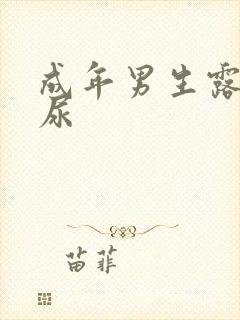 成年男生露
尿
苗菲